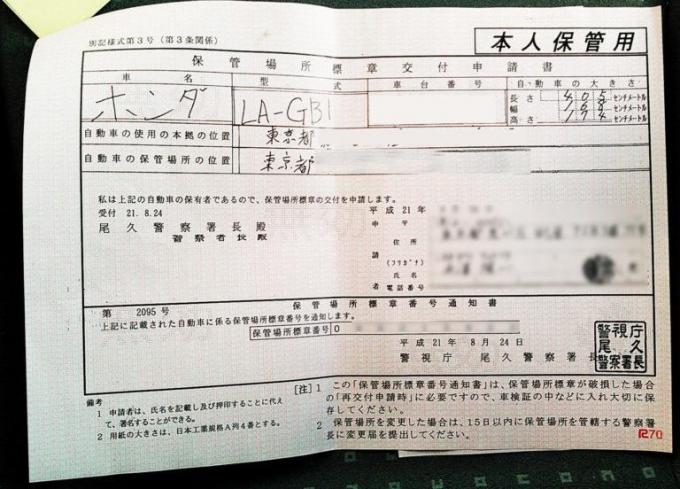 別記様式第3号(第3条関係)
本人保管用
保管場所標章交付申請書
車名 型式 車台番号 自動車の大きさ
ホンダ LA-GB1
長さ 405 センチメートル
幅 168 センチメートル
高さ 174 センチメートル
自動車の使用の本拠の位置 東京都
自動車の保管場所の位置 東京都
私は上記の自動車の保有者であるので、保管場所標章の交付を申請します。
受付 21.8.24 平成21年
尾久警察署長殿
警察署長殿
申 〒
住所
請
(フリガナ)
氏名
者 電話番号
第 2095 号 保管場所標章番号通知書
上記に記載された自動車に係る保管場所標章番号を通知します。
保管場所標章番号 0
平成21年8月24日
警視庁 尾久警察署長
警視庁尾久警察署長
備考
1 申請者は、氏名を記載し及び押印することに代え
て、署名することができる。
2 用紙の大きさは、日本工業規格A列4番とする。
[注] 1 この「保管場所標章番号通知書」は、保管場所標章が破損した場合
の「再交付申請時」に必要ですので、車検証の中などに入れ大切に保
存してください。
2 保管場所を変更した場合は、15日以内に保管場所を管轄する警察署
長に変更届を提出してください。
R70